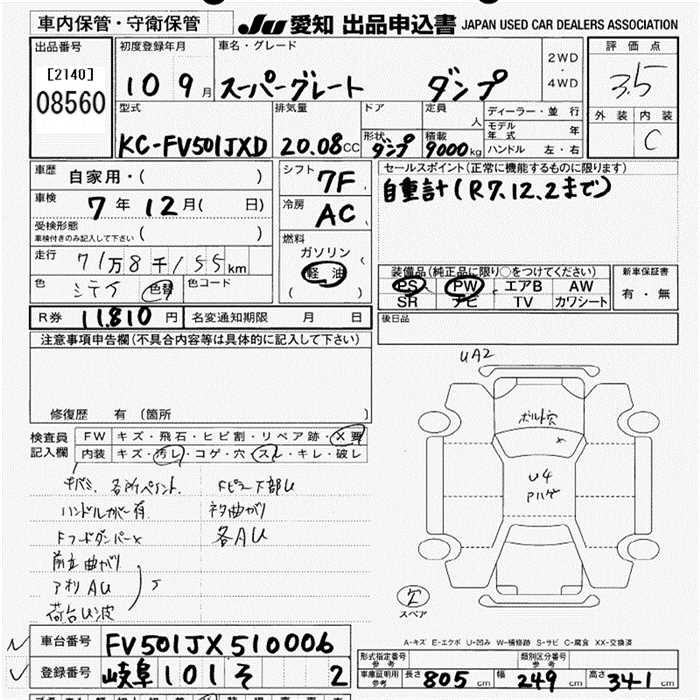 車内保管・守衛保管
JU 愛知 出品申込書 JAPAN USED CAR DEALERS ASSOCIATION
出品番号
[2140]
08560
初度登録年月
10 9月
車名・グレード
スーパーグレート ダンプ
2WD
・
4WD
評価点
3.5
外装 内装
C
型式
KC-FV501JXD
排気量
20.08cc
ドア
形状
ダンプ
定員
人
積載
9000kg
ディーラー・並行
モデル年式 年
ハンドル 左・右
車歴
自家用・( )
車検
7年12月( 日)
受検形態
車検付きのみ記入して下さい ( )
走行
71万8千155km
色
シテイ 色替 色コード
シフト
7F
冷房
AC
燃料
ガソリン
軽油
( )
セールスポイント(正常に機能するものに限ります)
自重計(R7.12.2まで)
装備品(純正品に限り○をつけてください)
PS PW エアB AW
SR ナビ TV カワシート
新車保証書
有・無
R券 11,810円 名変通知期限 月 日
後日品
注意事項申告欄(不具合内容等は具体的に記入して下さい)
修復歴 有(箇所 )
検査員
記入欄
FW キズ・飛石・ヒビ割・リペア跡・X要
内装 キズ・汚レ・コゲ・穴・スレ・キレ・破レ
キバミ、各所ペイント、 FピラーF部U
ハンドルカバー有 ネタ曲がり
Fフードダンパーx 各AU
前立曲がり
アオリAU
荷台U波
UA2
ボルト穴
x
U4
Aハゲ
スペア
A-キズ E-エクボ U-凹み W-補修跡 S-サビ C-腐食 XX-交換済
車台番号 FV501JX510006
登録番号 岐阜 101 そ 2
形式指定番号
参考
類別区分番号
参考
車庫証明用
参考
長さ 805cm 幅 249cm 高さ 341cm